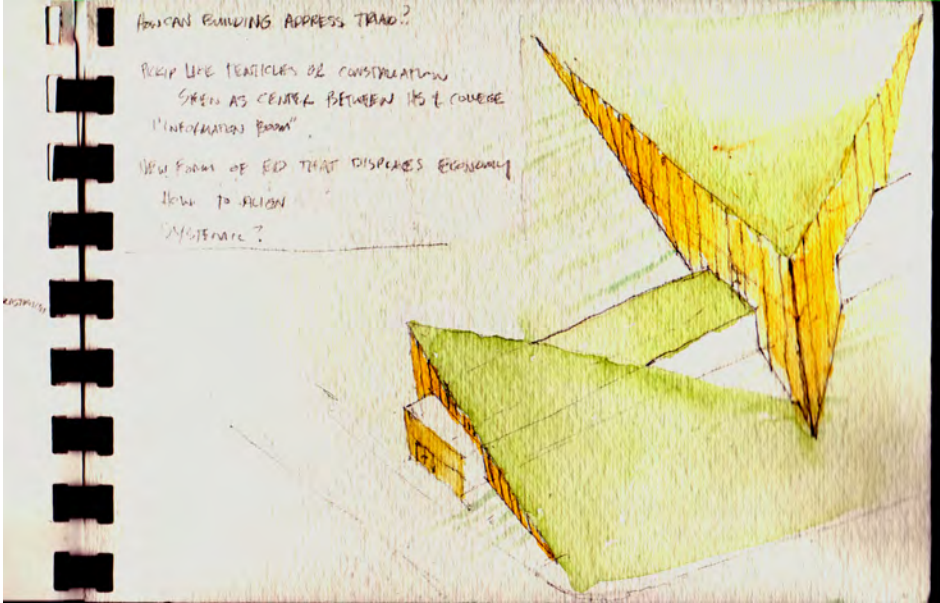 HOW CAN BUILDING ADDRESS TRIAD?
LIKE TENTICLES OR CONSTALLATION
SEEN AS CENTER BETWEEN HS & COLLEGE
"INFORMATION BOOM"
NEW FORM OF ED THAT DISPLACES ECONOMY
HOW TO ALIGN
SYSTEMIC?